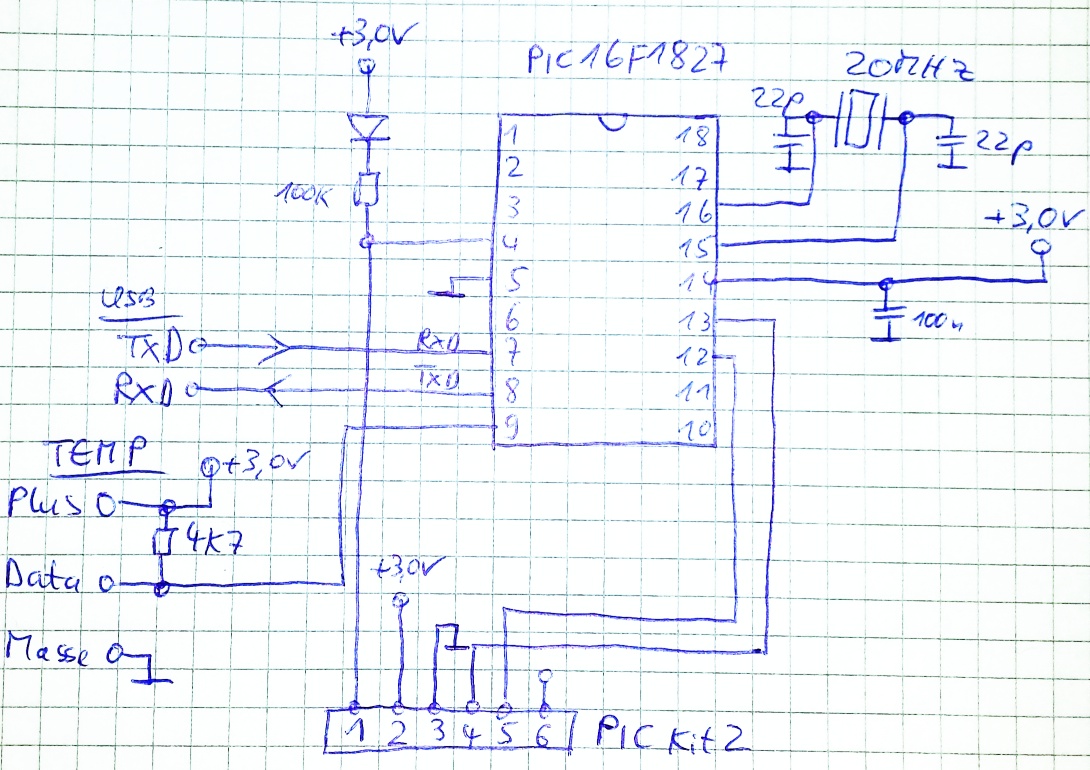 +3,0V
PIC16F1827
20MHZ
22p
22p
100K
1 18
2 17
3 16
4 15
5 14
6 13
7 12
8 11
9 10
+3,0V
100n
USB
TXD
RXD
RXD
TXD
TEMP
+3,0V
Plus
4K7
Data
+3,0V
Masse
1 2 3 4 5 6
PIC Kit2